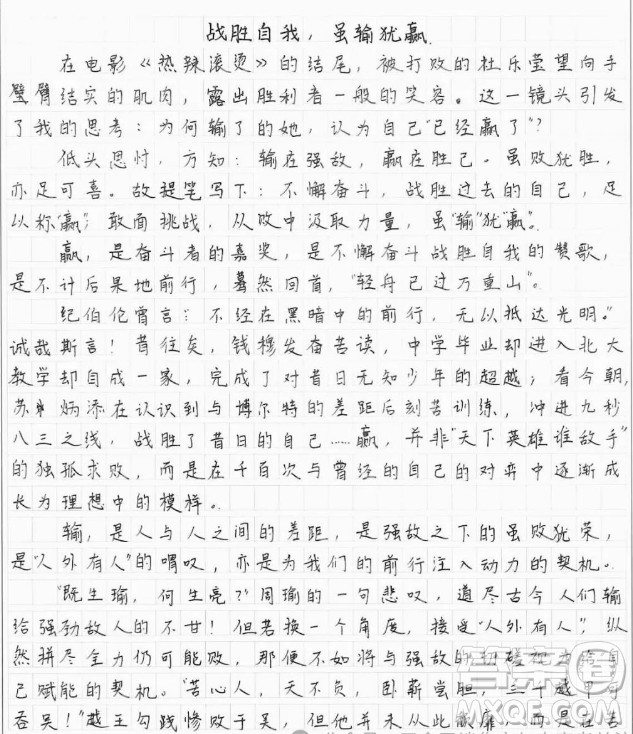 战胜自我，虽输犹赢.
在电影《热辣滚烫》的结尾，被打败的杜乐莹望向手
臂结实的肌肉，露出胜利者一般的笑容。这一镜头引发
了我的思考：为何输了的她，认为自己"已经赢了"？
低头思忖，方知：输在强敌，赢在胜己。虽败犹胜，
亦足可喜。故提笔写下：不懈奋斗，战胜过去的自己，足
以称"赢"；敢面挑战，从败中汲取力量，虽"输"犹"赢"。
赢，是奋斗者的嘉奖，是不懈奋斗战胜自我的赞歌，
是不计后果地前行，蓦然回首，"轻舟已过万重山"。
纪伯伦曾言："不经在黑暗中的前行，无以抵达光明。"
诚哉斯言！昔往矣，钱穆发奋苦读，中学毕业却进入北大
教学却自成一家，完成了对昔日无知少年的超越；看今朝，
苏炳添在认识到与博尔特的差距后刻苦训练，冲进九秒
八三之线，战胜了昔日的自己……赢，并非"天下英雄谁敌手"
的独孤求败，而是在千百次与曾经的自己的对弈中逐渐成
长为理想中的模样。
输，是人与人之间的差距，是强敌之下的虽败犹荣，
是"人外有人"的喟叹，亦是为我们的前行注入动力的契机。
"既生瑜，何生亮？"周瑜的一句悲叹，道尽古今人们输
给强劲敌人的不甘！但若换一个角度，接受"人外有人"，纵
然拼尽全力仍可能败，那便不如将与强敌的切磋视为给自
己赋能的契机。"苦心人，天不负，卧薪尝胆，三千越甲可
吞吴！"越王勾践惨败于吴，但他并未从此颓靡，而是在苦
MXQE.COM